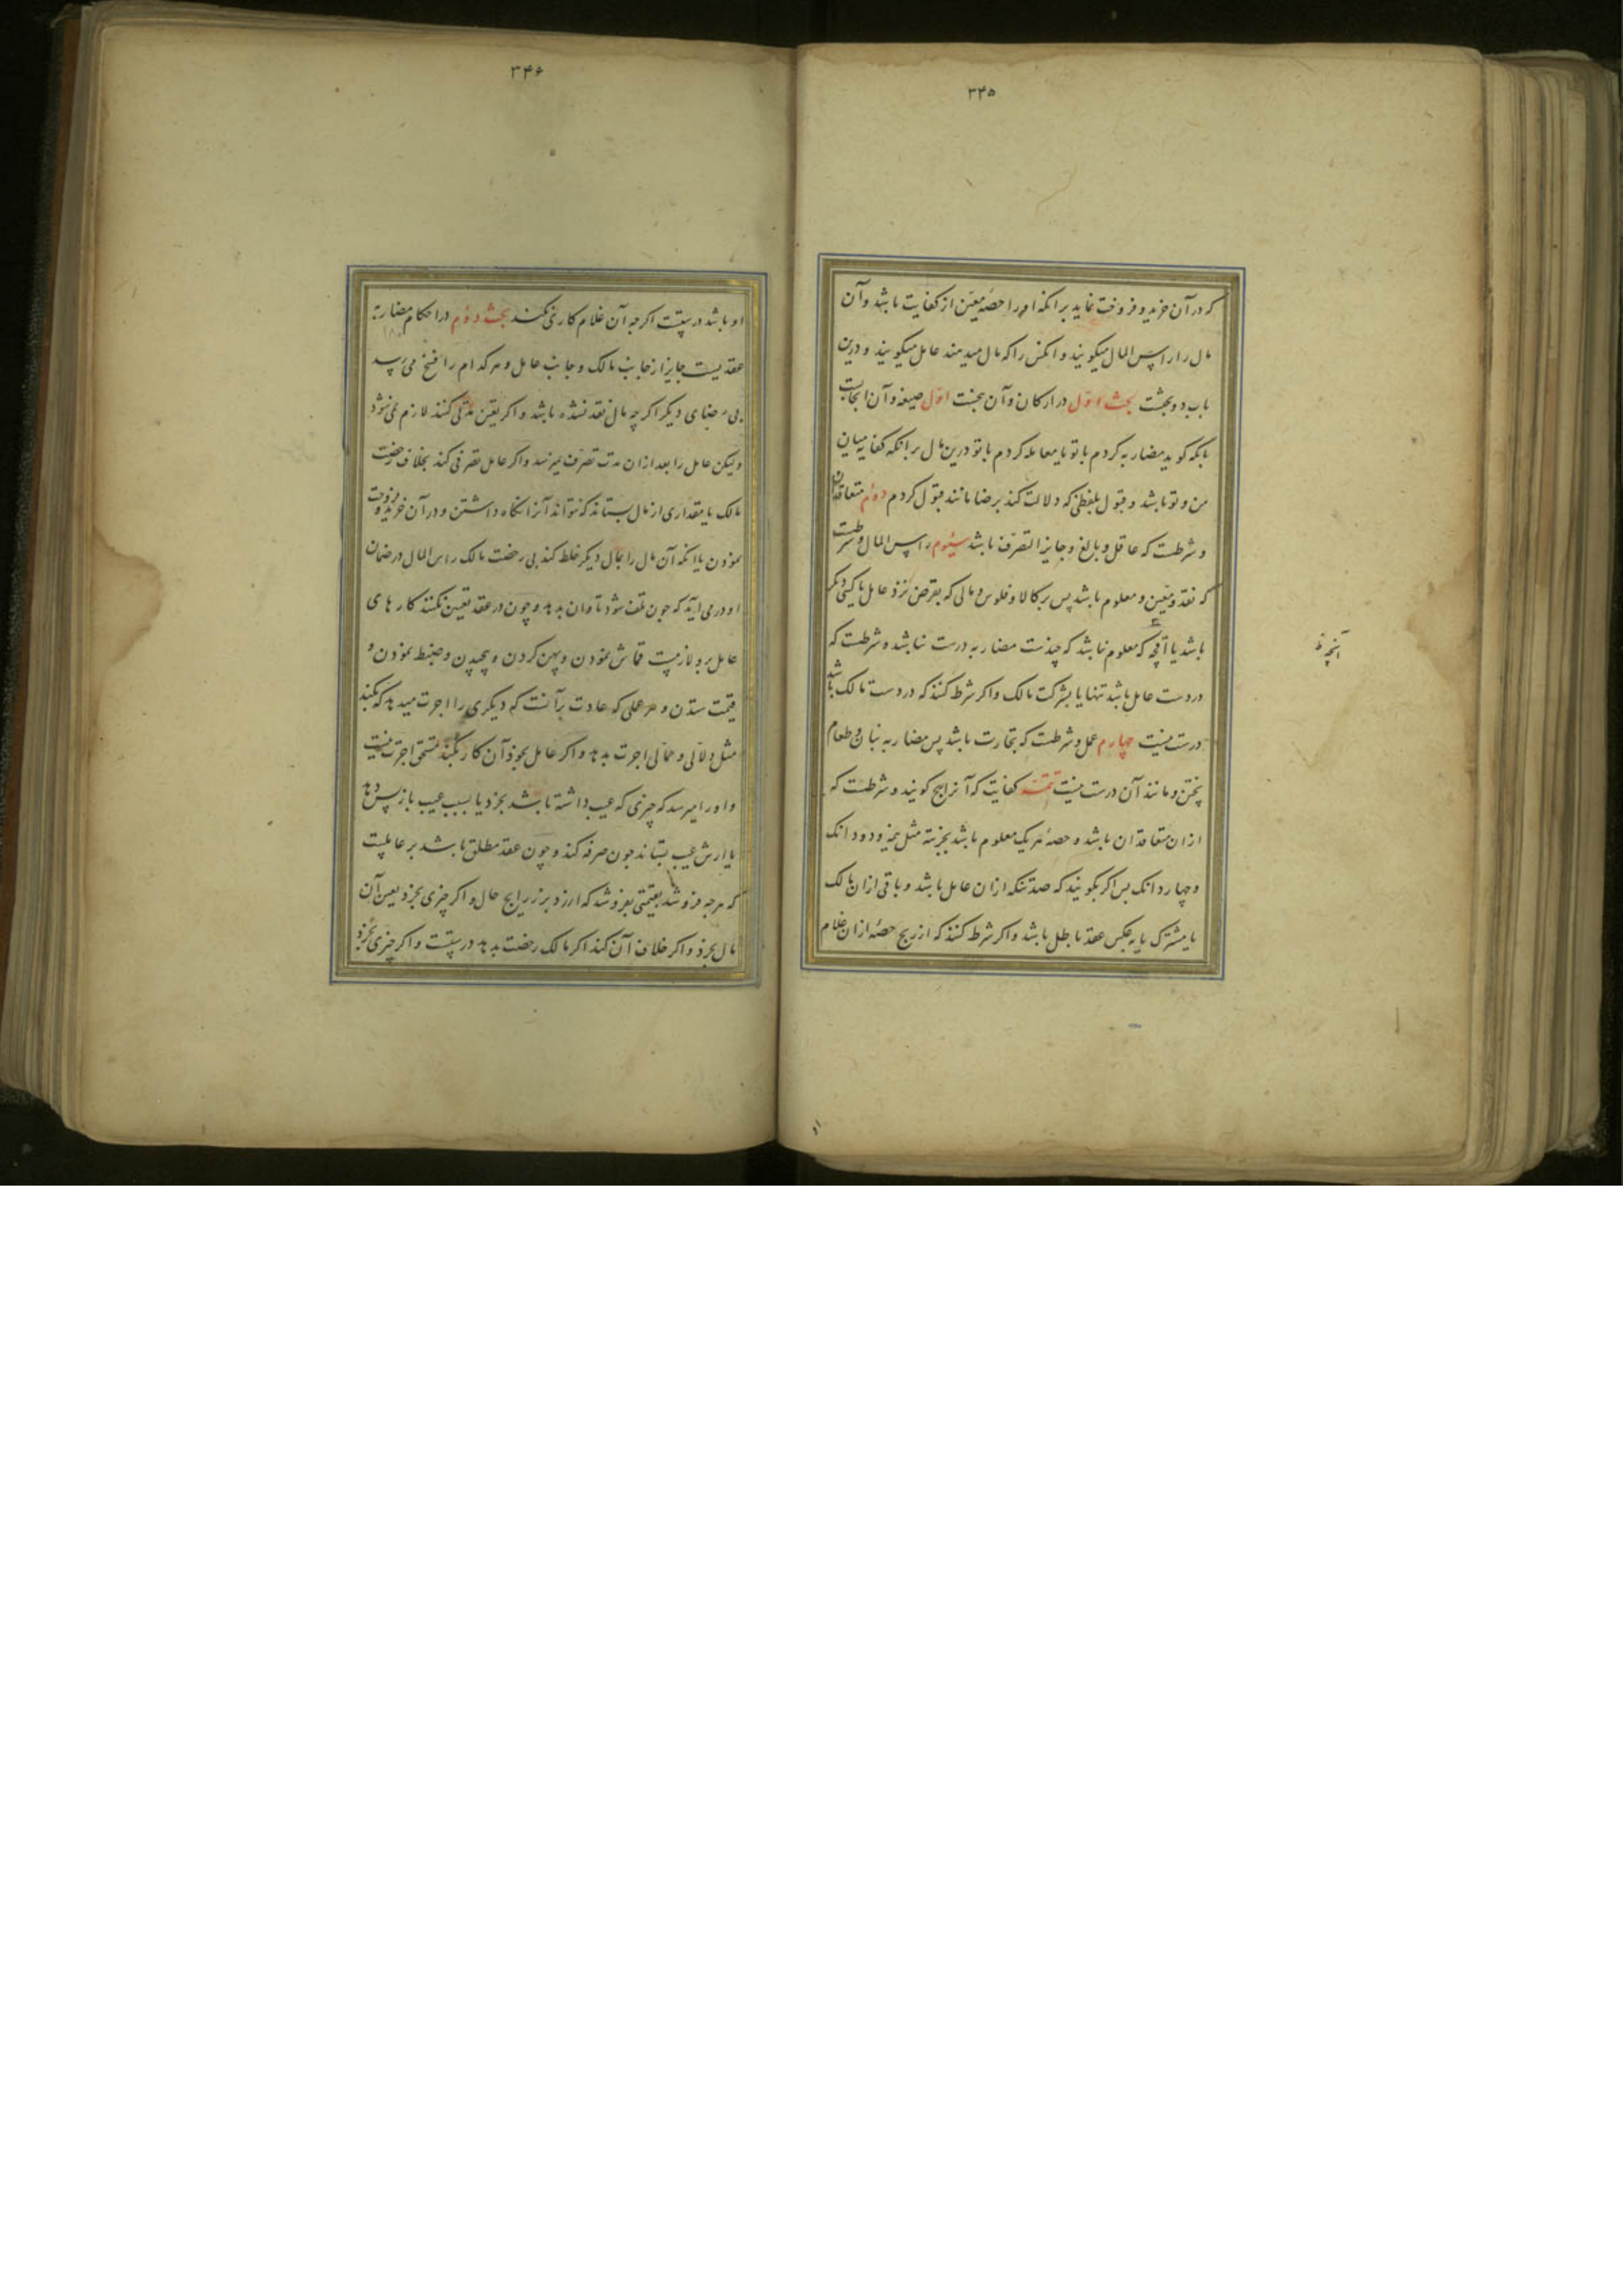 ۳۴۵
که در آن خرید و فروخت نماید برانکه او را حصه معین از کفایت باشد و آن
مال را راس المال میکویند و انکس را که مال میدهند عامل میکویند و درین
باب دو بحثست بحث اول در ارکان و آن پنجست اول صیغه و آن ایجابست
بانکه کوید مضاربه کردم با تو یا معامله کردم با تو درین مال برانکه کفایه میان
من و تو باشد و قبول بلفظی که دلالت کند برضا مانند قبول کردم دوم متعاقدان
و شرطست که عاقل و بالغ و جایز التصرف باشد سیوم راس المال و شرطست
که نقد و معین و معلوم باشد پس بر کالا و فلوس و مالی که بقرض نزد عامل یا کسی دیکر
باشد یا آنچه که معلوم نباشد که چندست مضاربه درست نباشد و شرطست که
در دست عامل باشد تنها یا بشرکت مالک و اکر شرط کنند که در دست مالک باشد
درست نیست چهارم عمل و شرطست که تجارت باشد پس مضاربه بنان و طعام
پختن و مانند آن درست نیست تتمه کفایت که آنرا ربح کویند و شرطست که
از ان متعاقدان باشد و حصه هر یک معلوم باشد بجزئیه مثل نیمه و دو دانک
و چهار دانک پس اکر بکویند که صد تنکه ازان عامل باشد و باقی ازان مالک
یا مشترک یا بعکس عقد باطل باشد و اکر شرط کنند که از ربح حصه ازان غلام
آنچه ظ
۳۴۶
او باشد درستست اکرچه آن غلام کاری نکند بحث دوم در احکام مضاربه
عقدیست جایز از جانب مالک و جانب عامل و هر کدام را فسخ می رسد
بی رضای دیکر اکر چه مال نقد نشده باشد و اکر تعین مدتی کنند لازم نمی شود
ولیکن عامل را بعد ازان مدت تصرف نمیرسد و اکر عامل تصرفی کند بخلاف رخصت
مالک یا مقداری از مال بستاند که نتواند آنرا نکاه داشتن و در آن خرید و فروخت
نمودن یا انکه آن مال را بمال دیکر خلط کند بی رخصت مالک راس المال در ضمان
او در می آید که چون تلف شود تاوان بدهد و چون در عقد تعیین نکنند کارهای
عامل برو لازمست قماش نمودن و پهن کردن و پیچیدن و ضبط نمودن و
قیمت ستدن و هر عملی که عادت بر آنست که دیکری را اجرت میدهد که بکند
مثل دلالی و حمالی اجرت بدهد و اکر عامل بخود آن کار بکند مستحق اجرت نیست
و او را میرسد که چیزی که عیب داشته باشد بخرد یا بسبب عیب بازپس دهد
یا ارش عیب بستاند چون صرفه کند و چون عقد مطلق باشد بر عاملست
که هرچه فروشد بقیمتی بفروشد که ارزد بزر رایج حال و اکر چیزی بخرد بعین آن
مال بخرد و اکر خلاف آن کند اکر مالک رخصت بدهد درستست و اکر چیزی بخرد